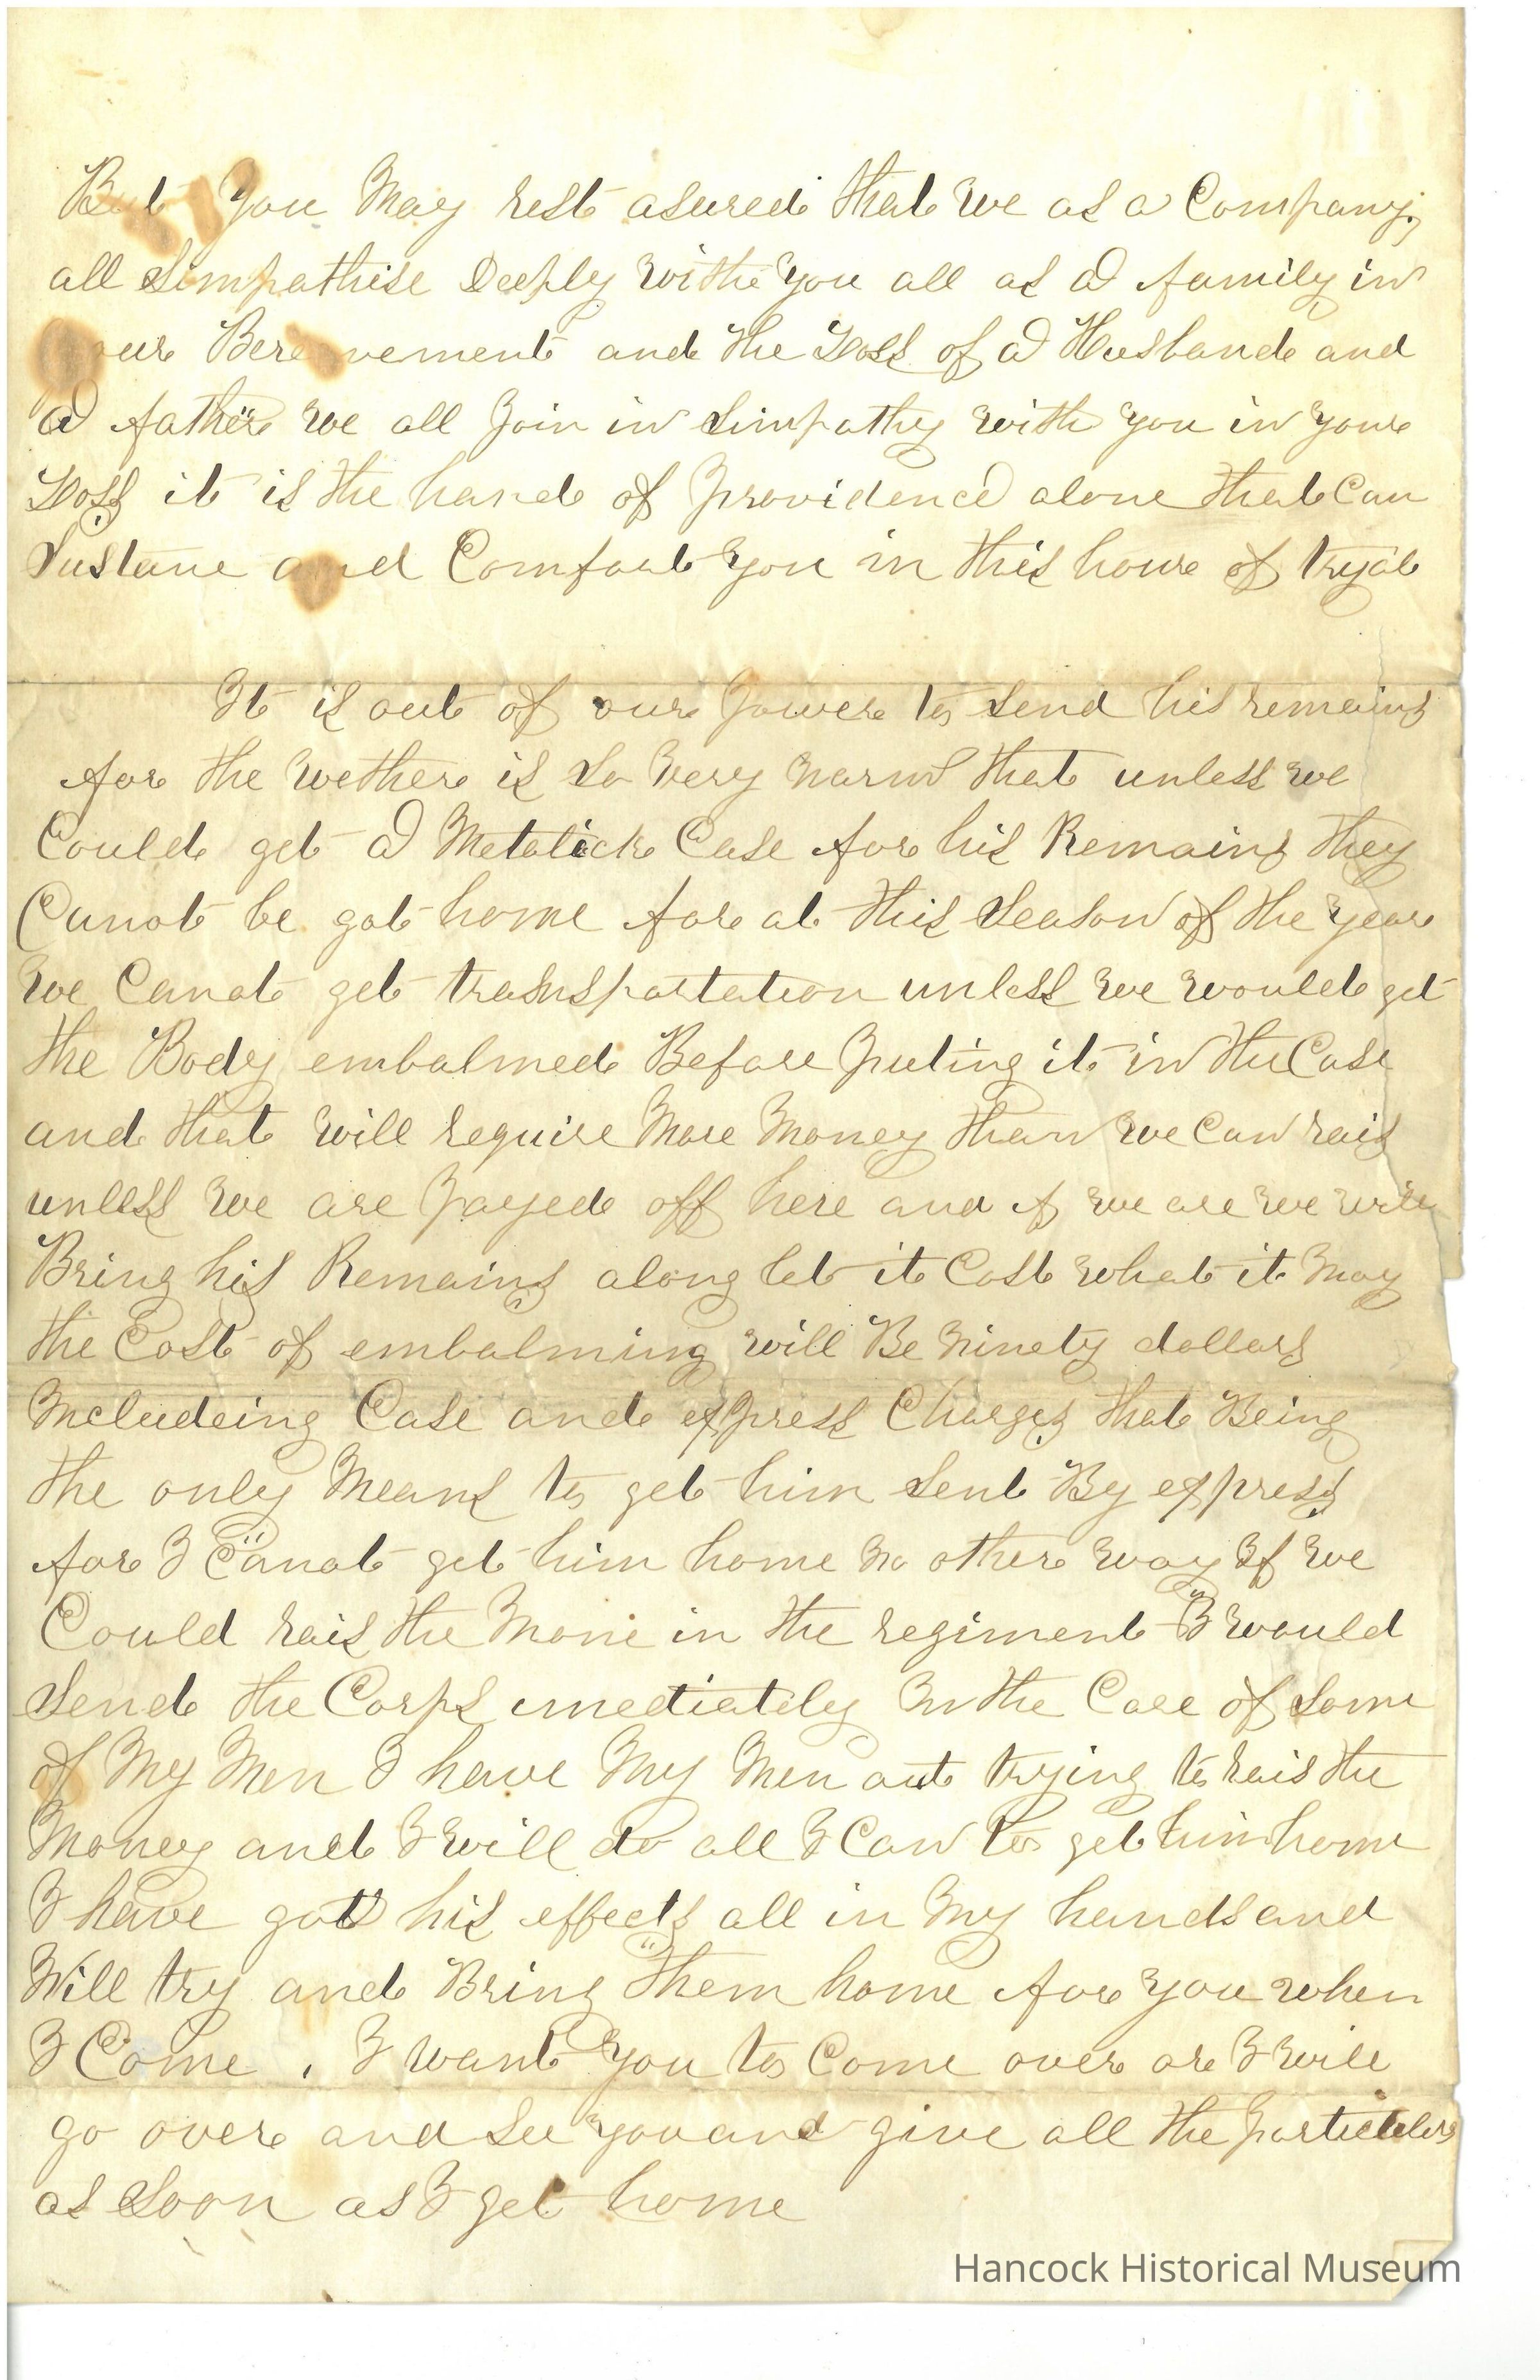 But You May rest asured that we as a Company
all Simpathise Deeply withe you all as a family in
your Berevement and the Loss of a Husband and
a father we all Join in Simpathy with you in your
Loss it is the hand of Providence alone that Can
Sustane and Comfort You in this houre of tryal
It is out of our Power to Send his remains
for the wether is So very warm that unless we
Could get a Metalick Case for his Remains they
Canot be got home for at this Season of the Year
we Canot get transportation unless we would get
the Body embalmed Before Puting it in the Case
and that will require More Money than we Can rais
unless we are Payed off here and if we are we will
Bring his Remains along let it Cost what it May
the Cost of embalming will Be Ninety dollars
Includeing Case and express Charges that Being
the only Means to get him Sent By express
for I Canot get him home no other way If we
Could rais the Mone in the regiment I would
Send the Corps imediately In the Care of Some
of My Men I have My Men out trying to rais the
Money and I will do all I Can to get him home
I have got his effects all in My hands and
Will try and Bring them home for You when
I Come . I want You to Come over or I will
go over and See You and give all the particulers
as Soon as I get home
Hancock Historical Museum